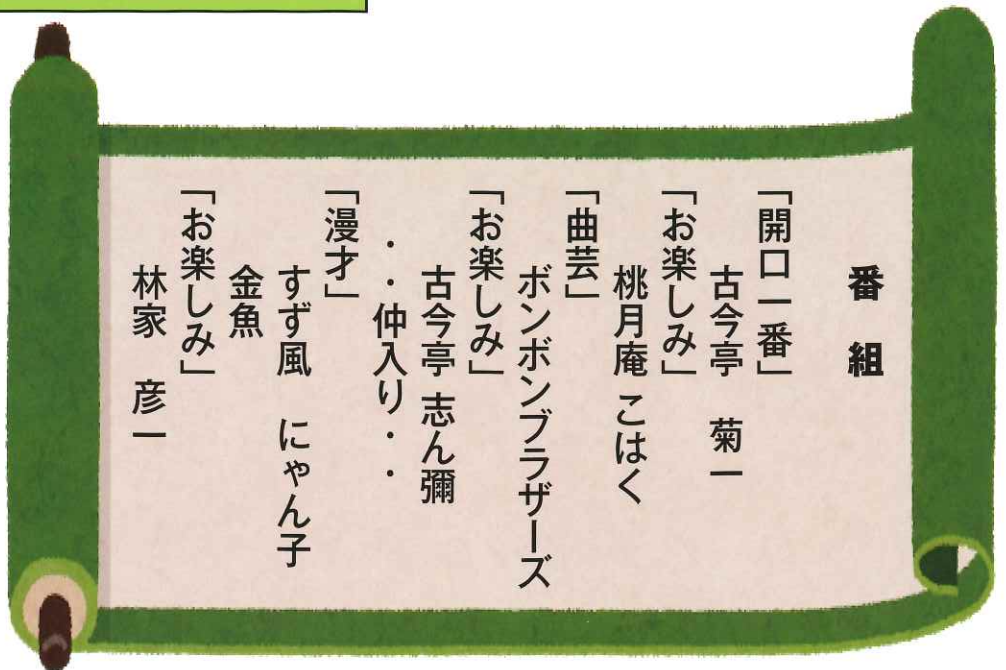 番 組
「開口一番」
古今亭 菊一
「お楽しみ」
桃月庵 こはく
「曲芸」
ボンボンブラザーズ
「お楽しみ」
古今亭 志ん彌
・・仲入り・・
「漫才」
すず風 にゃん子
金魚
「お楽しみ」
林家 彦一